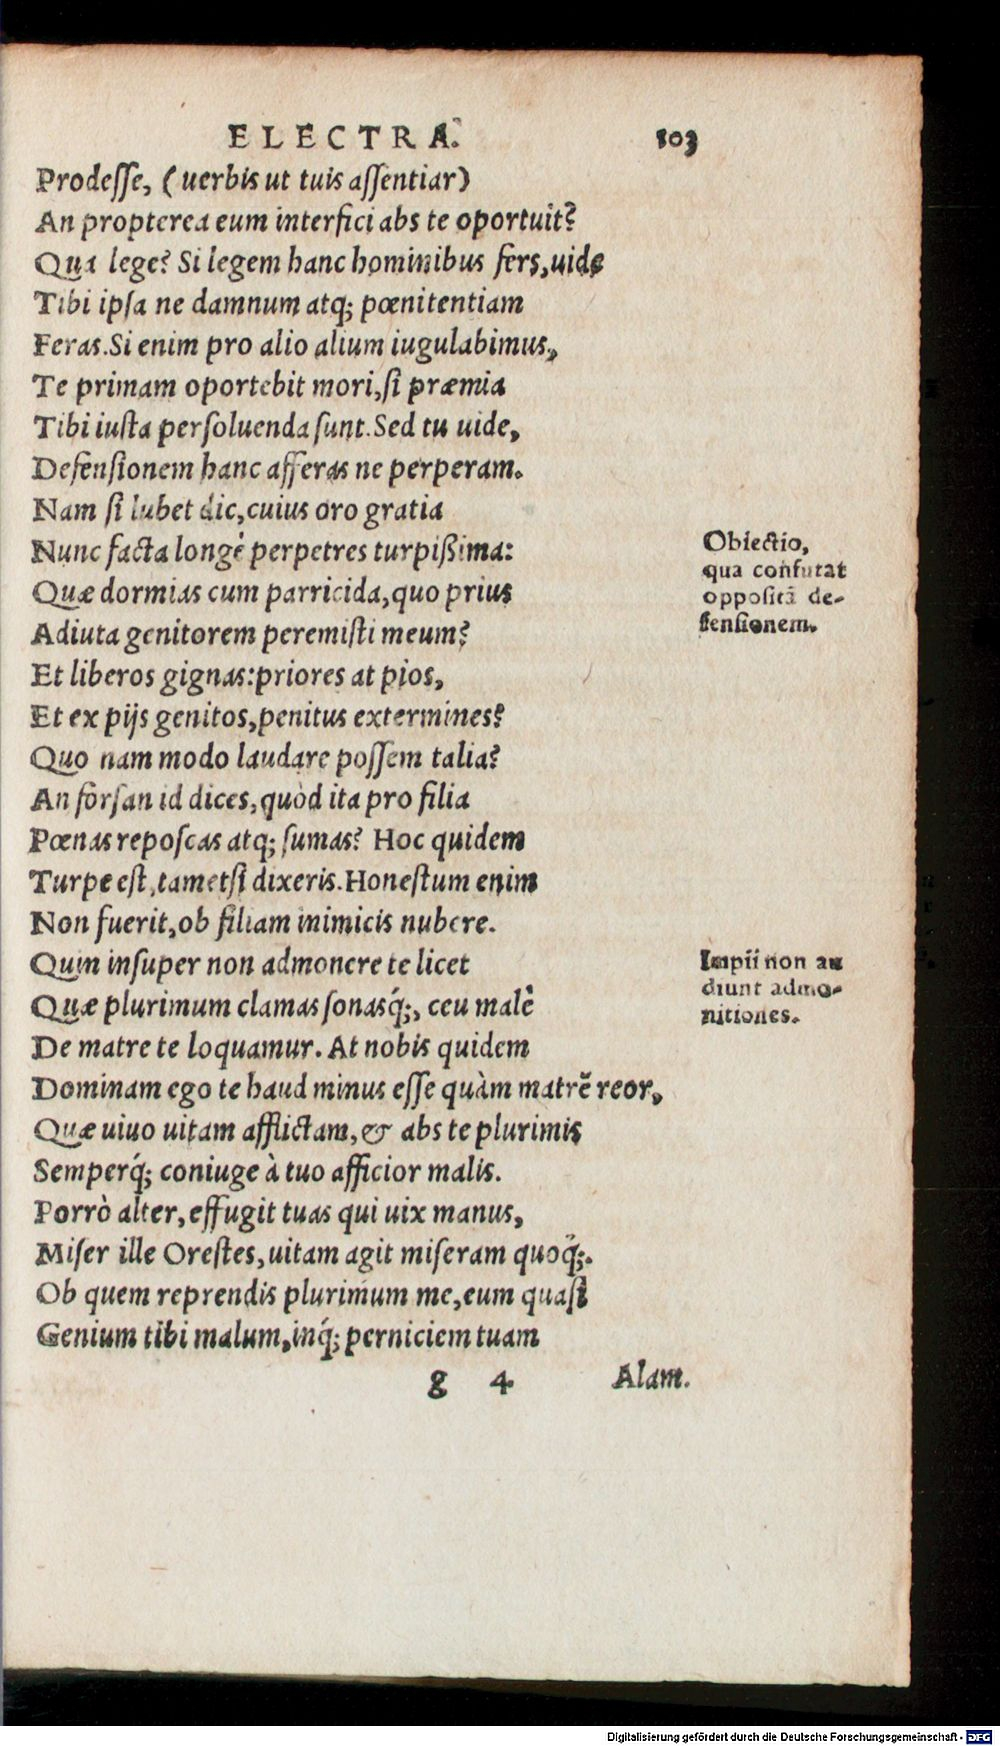 ELECTRA. 103
Prodesse, (uerbis ut tuis assentiar)
An propterea eum interfici abs te oportuit?
Qua lege? Si legem hanc hominibus fers, uide
Tibi ipsa ne damnum atq; pœnitentiam
Feras. Si enim pro alio alium iugulabimus,
Te primam oportebit mori, si præmia
Tibi iusta persoluenda sunt. Sed tu uide,
Defensionem hanc afferas ne perperam.
Nam si lubet dic, cuius oro gratia
Nunc facta longè perpetres turpißima:
Quæ dormias cum parricida, quo prius
Adiuta genitorem peremisti meum?
Et liberos gignas: priores at pios,
Et ex pijs genitos, penitus extermines?
Quo nam modo laudare possem talia?
An forsan id dices, quòd ita pro filia
Pœnas reposcas atq; sumas? Hoc quidem
Turpe est, tametsi dixeris. Honestum enim
Non fuerit, ob filiam inimicis nubere.
Quin insuper non admonere te licet
Quæ plurimum clamas sonasq́;, ceu malè
De matre te loquamur. At nobis quidem
Dominam ego te haud minus esse quàm matrẽ reor,
Quæ uiuo uitam afflictam, & abs te plurimis
Semperq́; coniuge à tuo afficior malis.
Porrò alter, effugit tuas qui uix manus,
Miser ille Orestes, uitam agit miseram quoq́;.
Ob quem reprendis plurimum me, eum quasi
Genium tibi malum, inq́; perniciem tuam
g 4 Alam.
Obiectio,
qua confutat
oppositã de-
fensionem.
Impii non au
diunt admo-
nitiones.
Digitalisierung gefördert durch die Deutsche Forschungsgemeinschaft - DFG